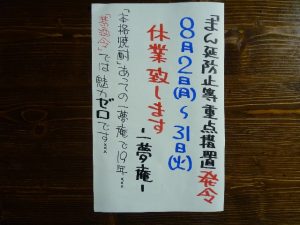 「まん延防止等重点措置」発令
8月2日(月)〜31日(火)
休業致します
ー一夢庵ー
「本格焼酎」あっての一夢庵で19年…
「禁酒令」では魅力ゼロです…